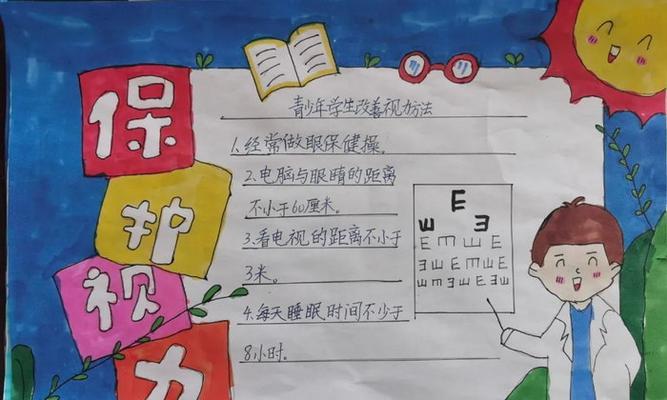 保
护
视
力
青少年学生改善视力方法
1.经常做眼保健操。
2.电脑与眼睛的距离
不小于60厘米。
3.看电视的距离不小于
3米。
4.每天睡眠时间不少于
8小时。
E
ш Ǝ
E m ш E
Ǝ ш E m E
ш m Ǝ ш m E